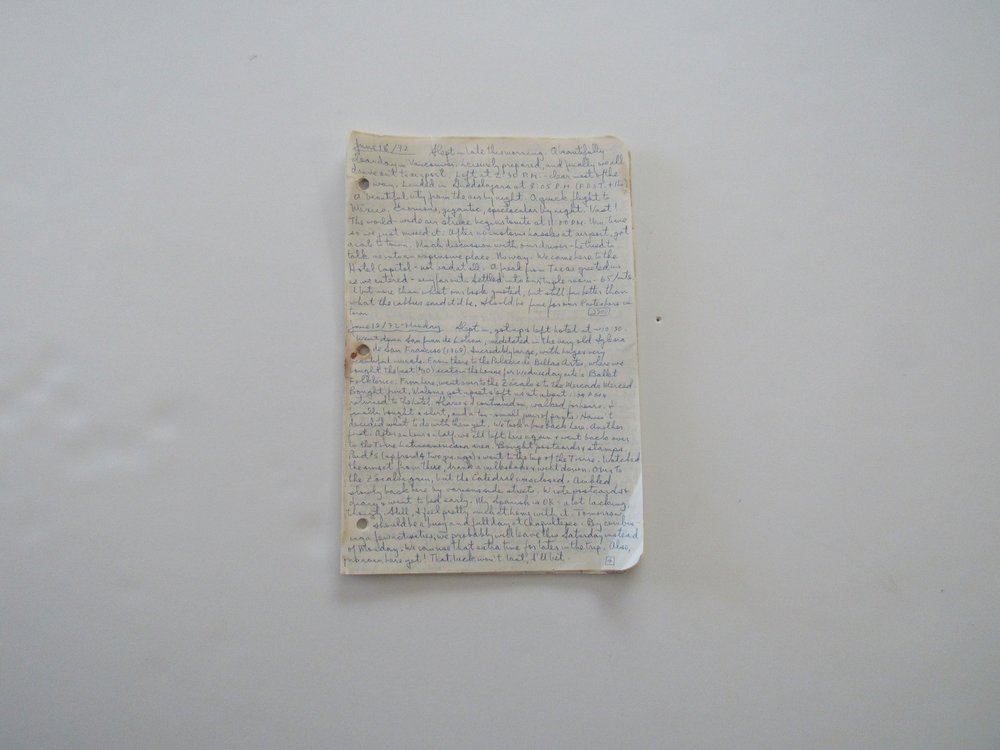 June 18/72 Slept in late this morning. A beautifully
clear day in Vancouver. Leisurely prepared, and finally we all
drove out to airport. Left at 2:30 P.M. - clear most of the
way. Landed in Guadalajara at 8:05 P.M. (P.D.S.T. + 1 hr)
A beautiful city from the air by night. A quick flight to
Mexico. Enormous, gigantic, spectacular by night. Vast!
The world-wide air strike begins tonite at 11:00 P.M. our time
so we just missed it. After no customs hassles at airport, got
a cab to town. Much discussion with our driver - he tried to
talk us into an expensive place. No way. We came here to the
Hotel Capitol - not bad at all. A freak from Texas greeted us
as we entered - very far out. Settled into our triple room
a bit more than what our book quoted, but still far better than
what the cabbie said it'd be. Should be fine for our
term
June 19/72 - Monday Slept in, got up & left hotel at 10:30.
Went down San Juan de Letran, meditated in the very old Iglesia
de San Francisco Incredibly large, with huge & very
beautiful murals. From there to the Palacio de Bellas Artes, where we
bought the best seats in the house for Wednesday nite's Ballet
Folklorico. From here, went over to the Zocalo & to the Mercado Merced
Bought fruit, got a post & left us at about
returned to the hotel. & I continued on, walked for hours, &
finally bought a shirt, and a too-small pair of pants. Haven't
decided what to do with them yet. We took a bus back here. Another
first. After an hour & a half, we all left here again & went back over
to the Torre Latinoamericana area. Bought postcards & stamps.
Paid & went to the top of the Torre. Watched
the sunset from there, drank a milkshake & went down. Over to
the Zocalo again, but the Catedral was closed. Ambled
slowly back here by various side streets. Wrote postcards &
diary & went to bed early. My Spanish is OK - a lot lacking,
though. Still, I feel pretty much at home with it. Tomorrow
should be a busy and full day at Chapultepec. By combin-
ing a few activities, we probably will leave this Saturday instead
of Monday. We can use that extra time for later in the trip. Also,
no rain here yet! That luck won't last, I'll bet.